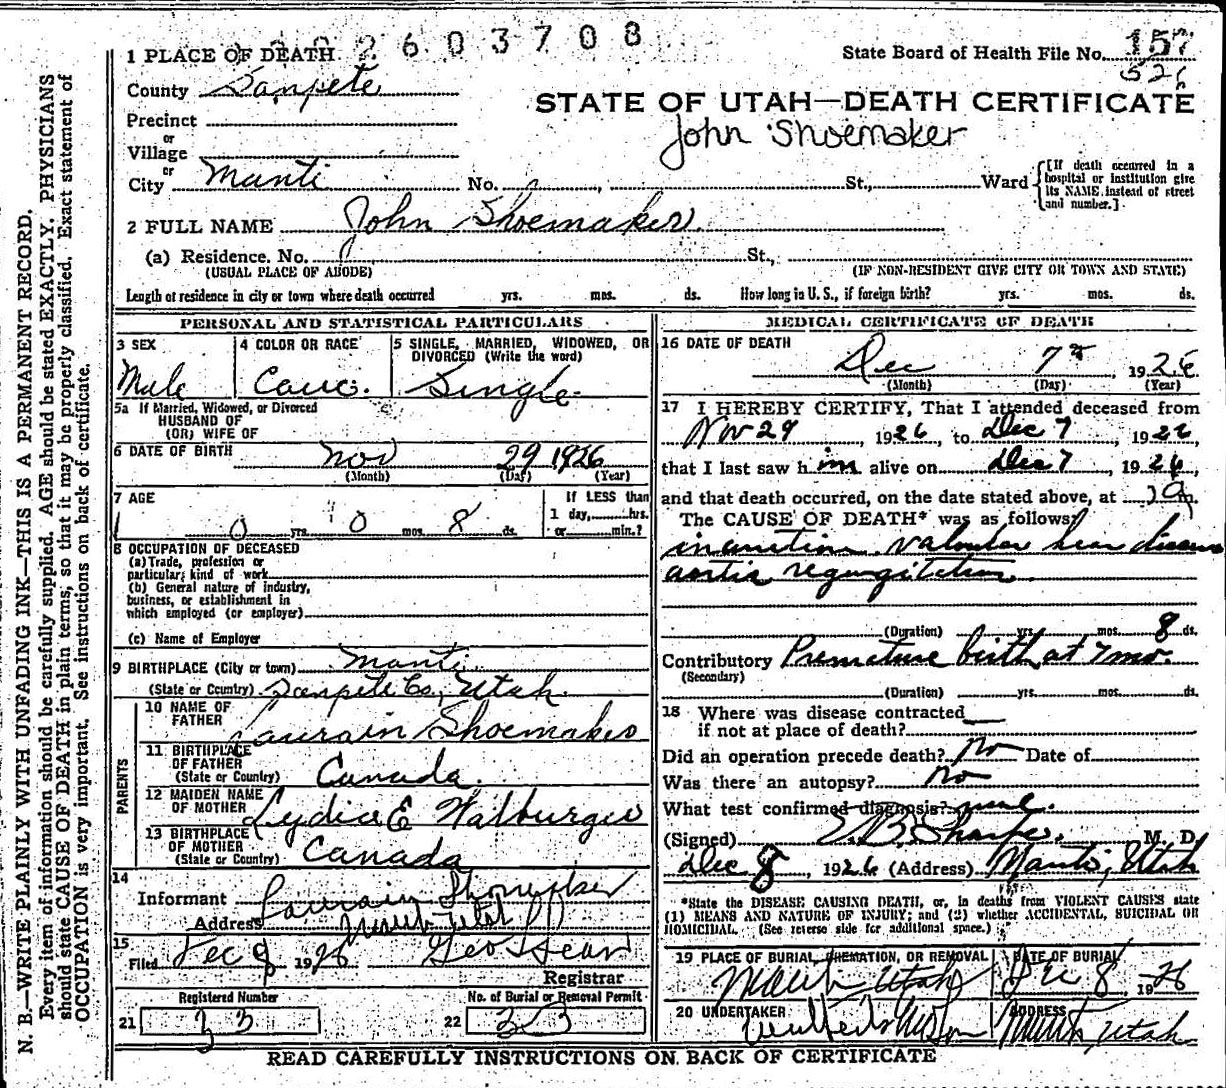 N. B.—WRITE PLAINLY WITH UNFADING INK—THIS IS A PERMANENT RECORD.
Every item of information should be carefully supplied. AGE should be stated EXACTLY. PHYSICIANS
should state CAUSE OF DEATH in plain terms, so that it may be properly classified. Exact statement of
OCCUPATION is very important. See instructions on back of certificate.
2603708
1 PLACE OF DEATH
State Board of Health File No. 157
526
County Sanpete
STATE OF UTAH—DEATH CERTIFICATE
John Shoemaker
Precinct
or
Village
or
City Manti No. St., Ward
[If death occurred in a
hospital or institution give
its NAME instead of street
and number.]
2 FULL NAME John Shoemaker
(a) Residence. No. St.,
(USUAL PLACE OF ABODE) (IF NON-RESIDENT GIVE CITY OR TOWN AND STATE)
Length of residence in city or town where death occurred yrs. mos. ds. How long in U. S., if foreign birth? yrs. mos. ds.
PERSONAL AND STATISTICAL PARTICULARS
3 SEX
Male
4 COLOR OR RACE
Cauc.
5 SINGLE, MARRIED, WIDOWED, OR
DIVORCED (Write the word)
Single
5a If Married, Widowed, or Divorced
HUSBAND OF
(OR) WIFE OF
6 DATE OF BIRTH Nov 29 1926
(Month) (Day) (Year)
7 AGE
0 yrs. 0 mos. 8 ds.
If LESS than
1 day, hrs.
or min.?
8 OCCUPATION OF DECEASED
(a) Trade, profession or
particular kind of work
(b) General nature of industry,
business, or establishment in
which employed (or employer)
(c) Name of Employer
9 BIRTHPLACE (City or town) Manti
(State or Country) Sanpete Co, Utah.
PARENTS
10 NAME OF
FATHER Laurain Shoemaker
11 BIRTHPLACE
OF FATHER
(State or Country) Canada.
12 MAIDEN NAME
OF MOTHER Lydia E Walburger
13 BIRTHPLACE
OF MOTHER
(State or Country) Canada
14
Informant Laurain Shoemaker
Address Manti Utah
15
Filed Dec 8 1926
Registrar
Registered Number
21 33
No. of Burial or Removal Permit
22 353
MEDICAL CERTIFICATE OF DEATH
16 DATE OF DEATH
Dec 7th, 1926
(Month) (Day) (Year)
17 I HEREBY CERTIFY, That I attended deceased from
Nov 29, 1926, to Dec 7, 1926,
that I last saw him alive on Dec 7, 1926,
and that death occurred, on the date stated above, at m.
The CAUSE OF DEATH* was as follows:
inanition valvular hear disease
aortic regurgitation
(Duration) yrs. mos. 8 ds.
Contributory Premature birth at 7 mo.
(Secondary)
(Duration) yrs. mos. ds.
18 Where was disease contracted
if not at place of death?
Did an operation precede death? No Date of
Was there an autopsy? No
What test confirmed diagnosis?
(Signed) M. D.
Dec 8, 1926 (Address) Manti, Utah
*State the DISEASE CAUSING DEATH, or, in deaths from VIOLENT CAUSES state
(1) MEANS AND NATURE OF INJURY; and (2) whether ACCIDENTAL, SUICIDAL OR
HOMICIDAL. (See reverse side for additional space.)
19 PLACE OF BURIAL, CREMATION, OR REMOVAL
Manti Utah
DATE OF BURIAL
Dec 8, 1926
20 UNDERTAKER
ADDRESS
Manti, Utah
READ CAREFULLY INSTRUCTIONS ON BACK OF CERTIFICATE